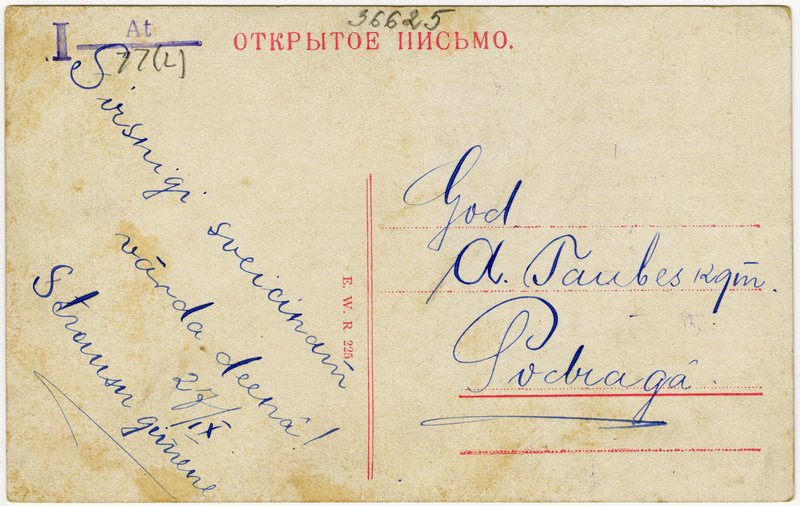 36625
I At
77(2)
ОТКРЫТОЕ ПИСЬМО.
Sirsnigi sveicinam
vārda deenā!
27/IX
Strausu gimene
E. W. R 225
God.
A. Taubes kgm.
Podragā.